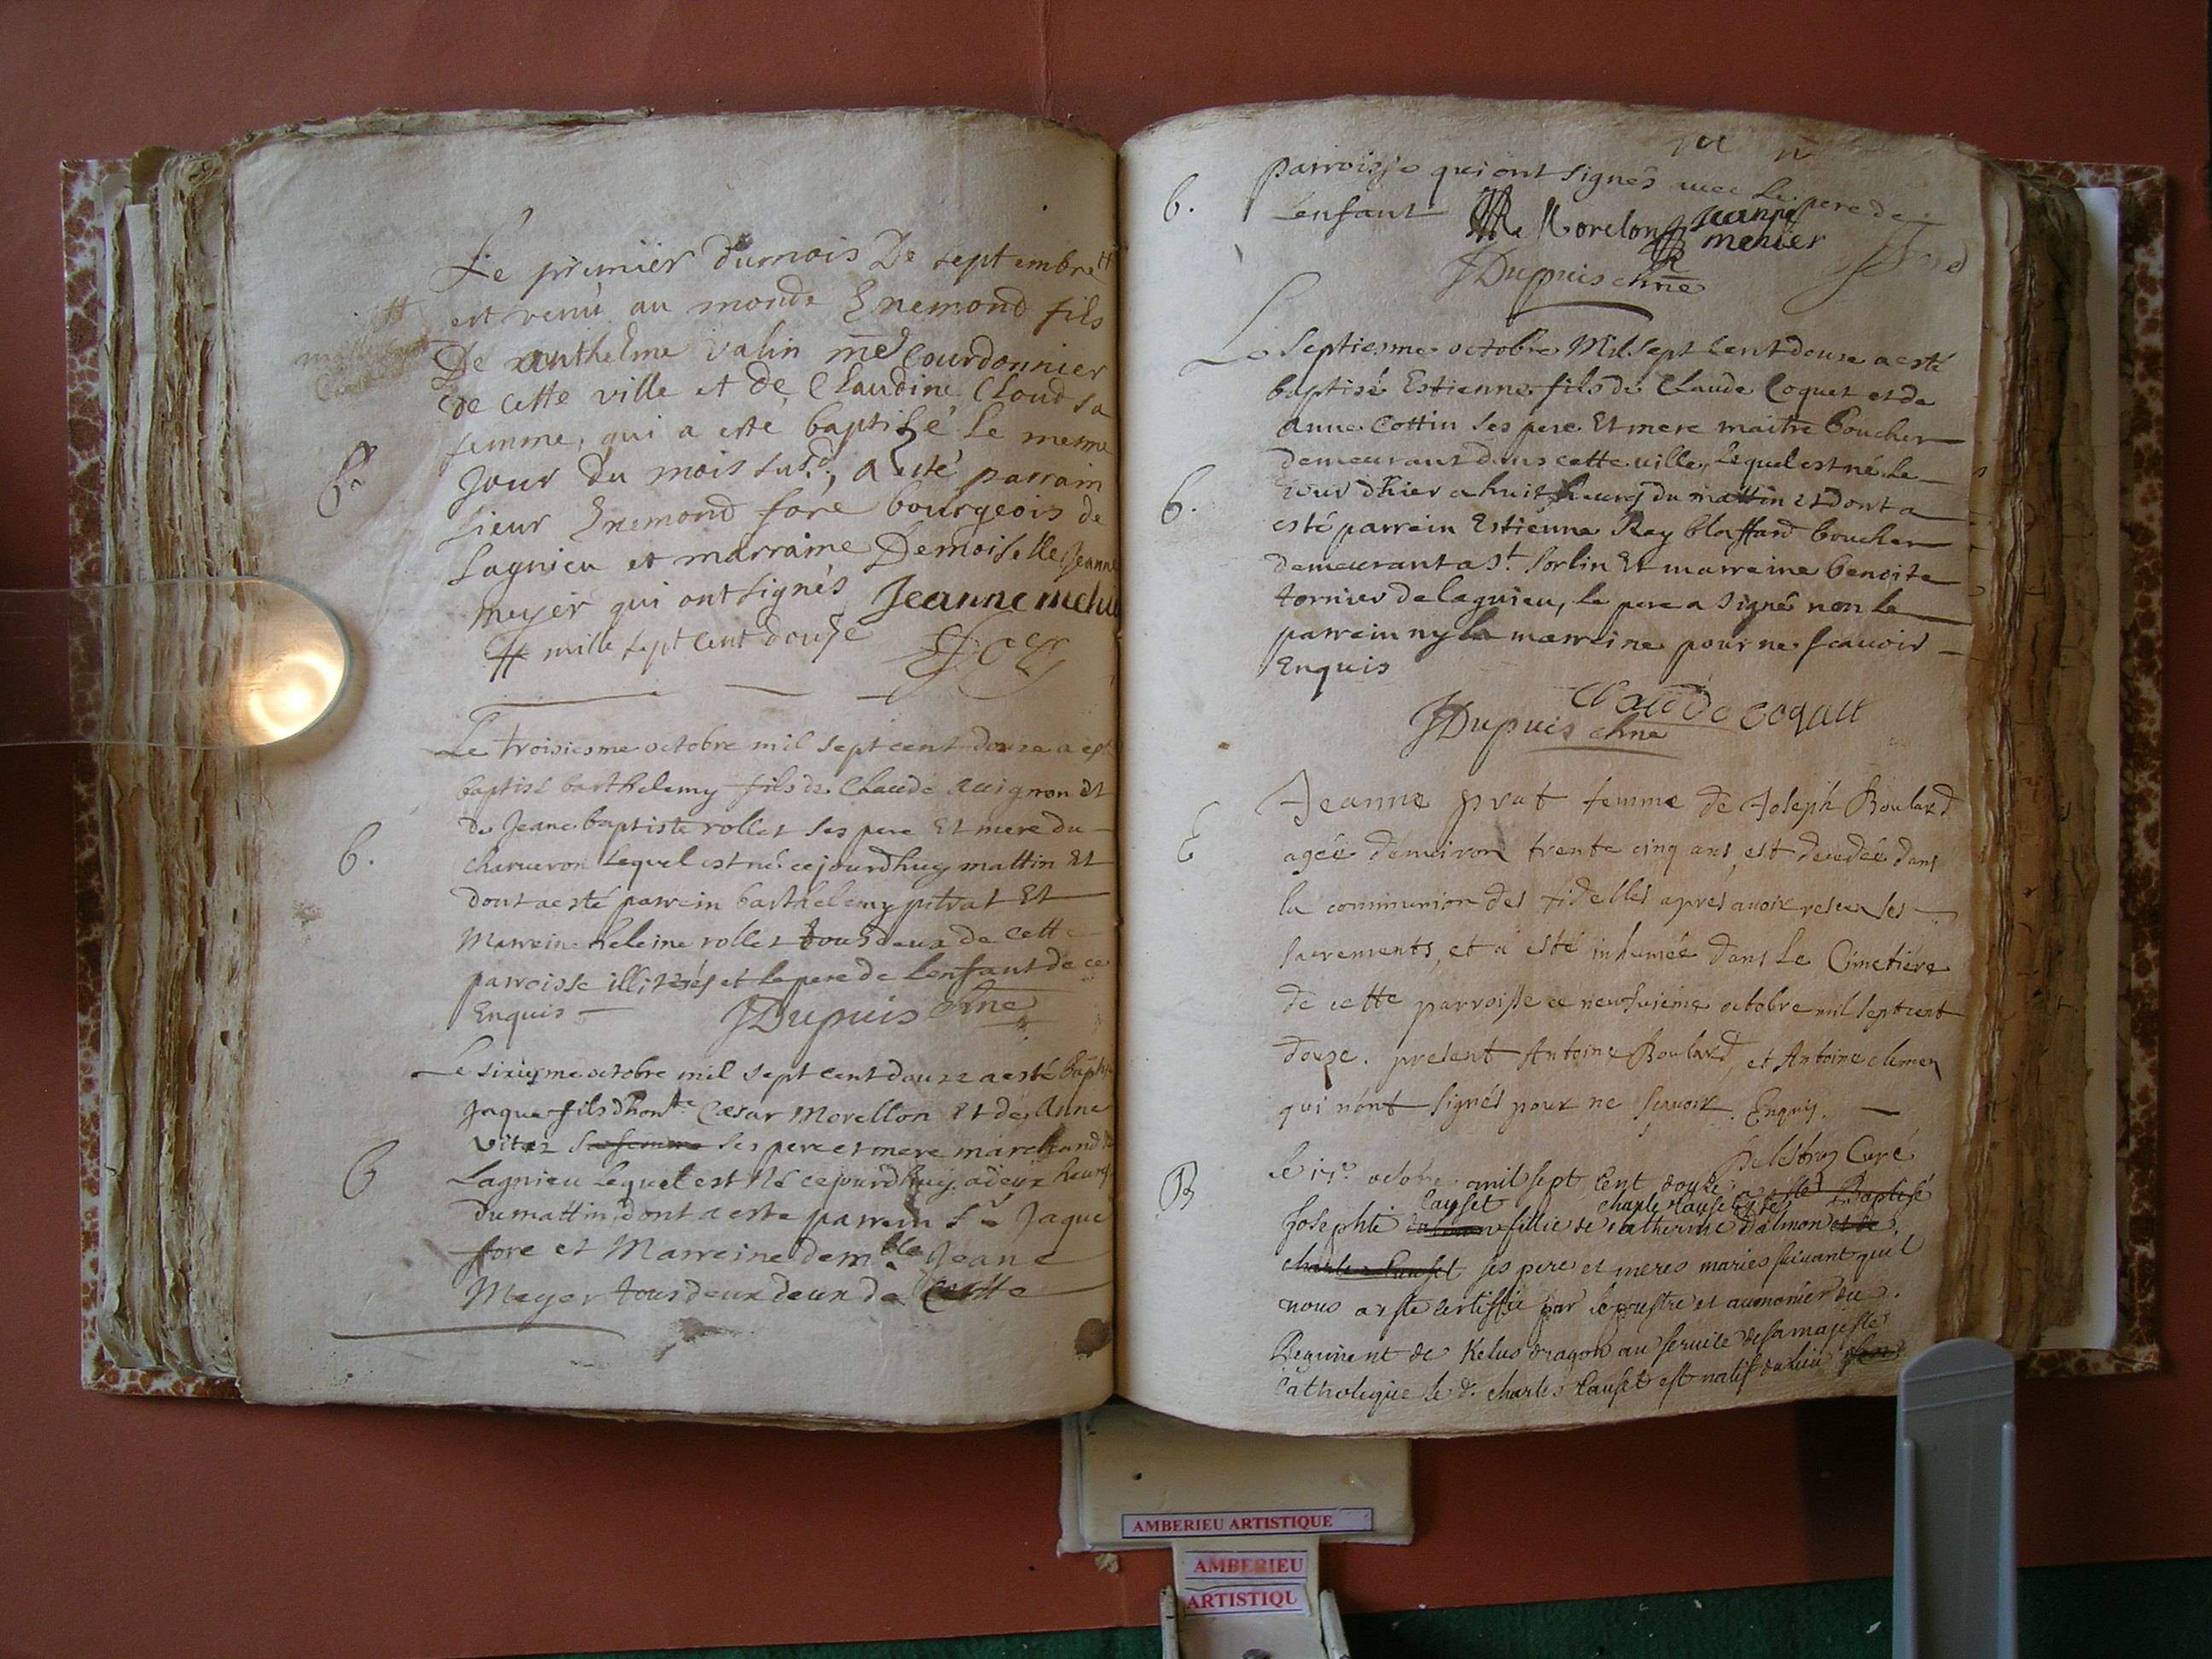 Le premier du mois De septembre #
est venu au monde Enemond fils
De anthelme valin me Courdonnier
de cette ville et de Claudine Cloud sa
femme, qui a esté baptisé le mesme
Jour du mois susd., a esté parrain
sieur Enemond foré bourgeois de
Lagnieu et marraine Demoiselle Jeanne
meyer qui ont signés Jeanne
# mille sept cent douse
B
Le troisiesme octobre mil sept cent douze a est
baptisé barthelemy fils de Claude auignon et
de Jeane baptiste rollet ses pere Et mere du
charueron Lequel est né cejourdhuy mattin Et
b.
dont a esté parrein barthelemy pitrat Et
Marreine heleine rollet tous deux de cette
parroisse illiterés et le pere de Lenfant de ce
Enquis
JDupuis chne
Le sixiesme octobre mil sept cent douze a esté bapt
Jaque fils dhonble Cæsar Morellon Et de Anne
vitez sa femme ses pere et mere marchand
Lagnieu Lequel est Né cejourdhuy a deux heures
B
du mattin, dont a esté parrein sr Jaque
fore et Marreine demlle Jeane
Meyer tous deux deux de Cette
parroisse qui ont signés auec Le pere de
b.
Lenfant Morelon Jeanne
menier
JDupuis chne
Le septiesme octobre Mil sept Cent douse a esté
baptisé Estienne fils de Claude Coquet et de
Anne Cottin ses pere Et mere maitre boucher
demeurant dans cette ville, lequel est né le
iour dhier a huit heures du mattin et dont a
b.
esté parrein Estienne Rey blaffard boucher
demeurant a St. Sorlin Et marreine benoite
tornier de lagnieu, le pere a signé non le
parrein ny la marreine pour ne scauoir
Enquis
Claude coquet
JDupuis chne
Jeanne prat femme de Joseph Boulard
E
agée denuiron trente cinq ans est decedée dans
la communion des fidelles apres auoir receu ses
sacrements, et a esté inhumée dans Le Cimetiére
de cette parroisse ce neufuieme octobre mil sept cent
douze. present Antoine Boulard, et Antoine clemen
qui nont signés pour ne scauoir Enquis.
Curé
B
Le octobre mil sept Cent douze a esté Baptisé
Causet charle Causet et de
Josephte fillie de catherine Dalmon et de
charle Causet ses pere et meres mariés suiuant quil
nous a esté certiffié par le prestre et aumonier du
Regiment de Kelus dragon au seruice de sa majesté
Catholique le d. charles Causet est natif du lieu
AMBERIEU ARTISTIQUE
AMBERIEU
ARTISTIQU